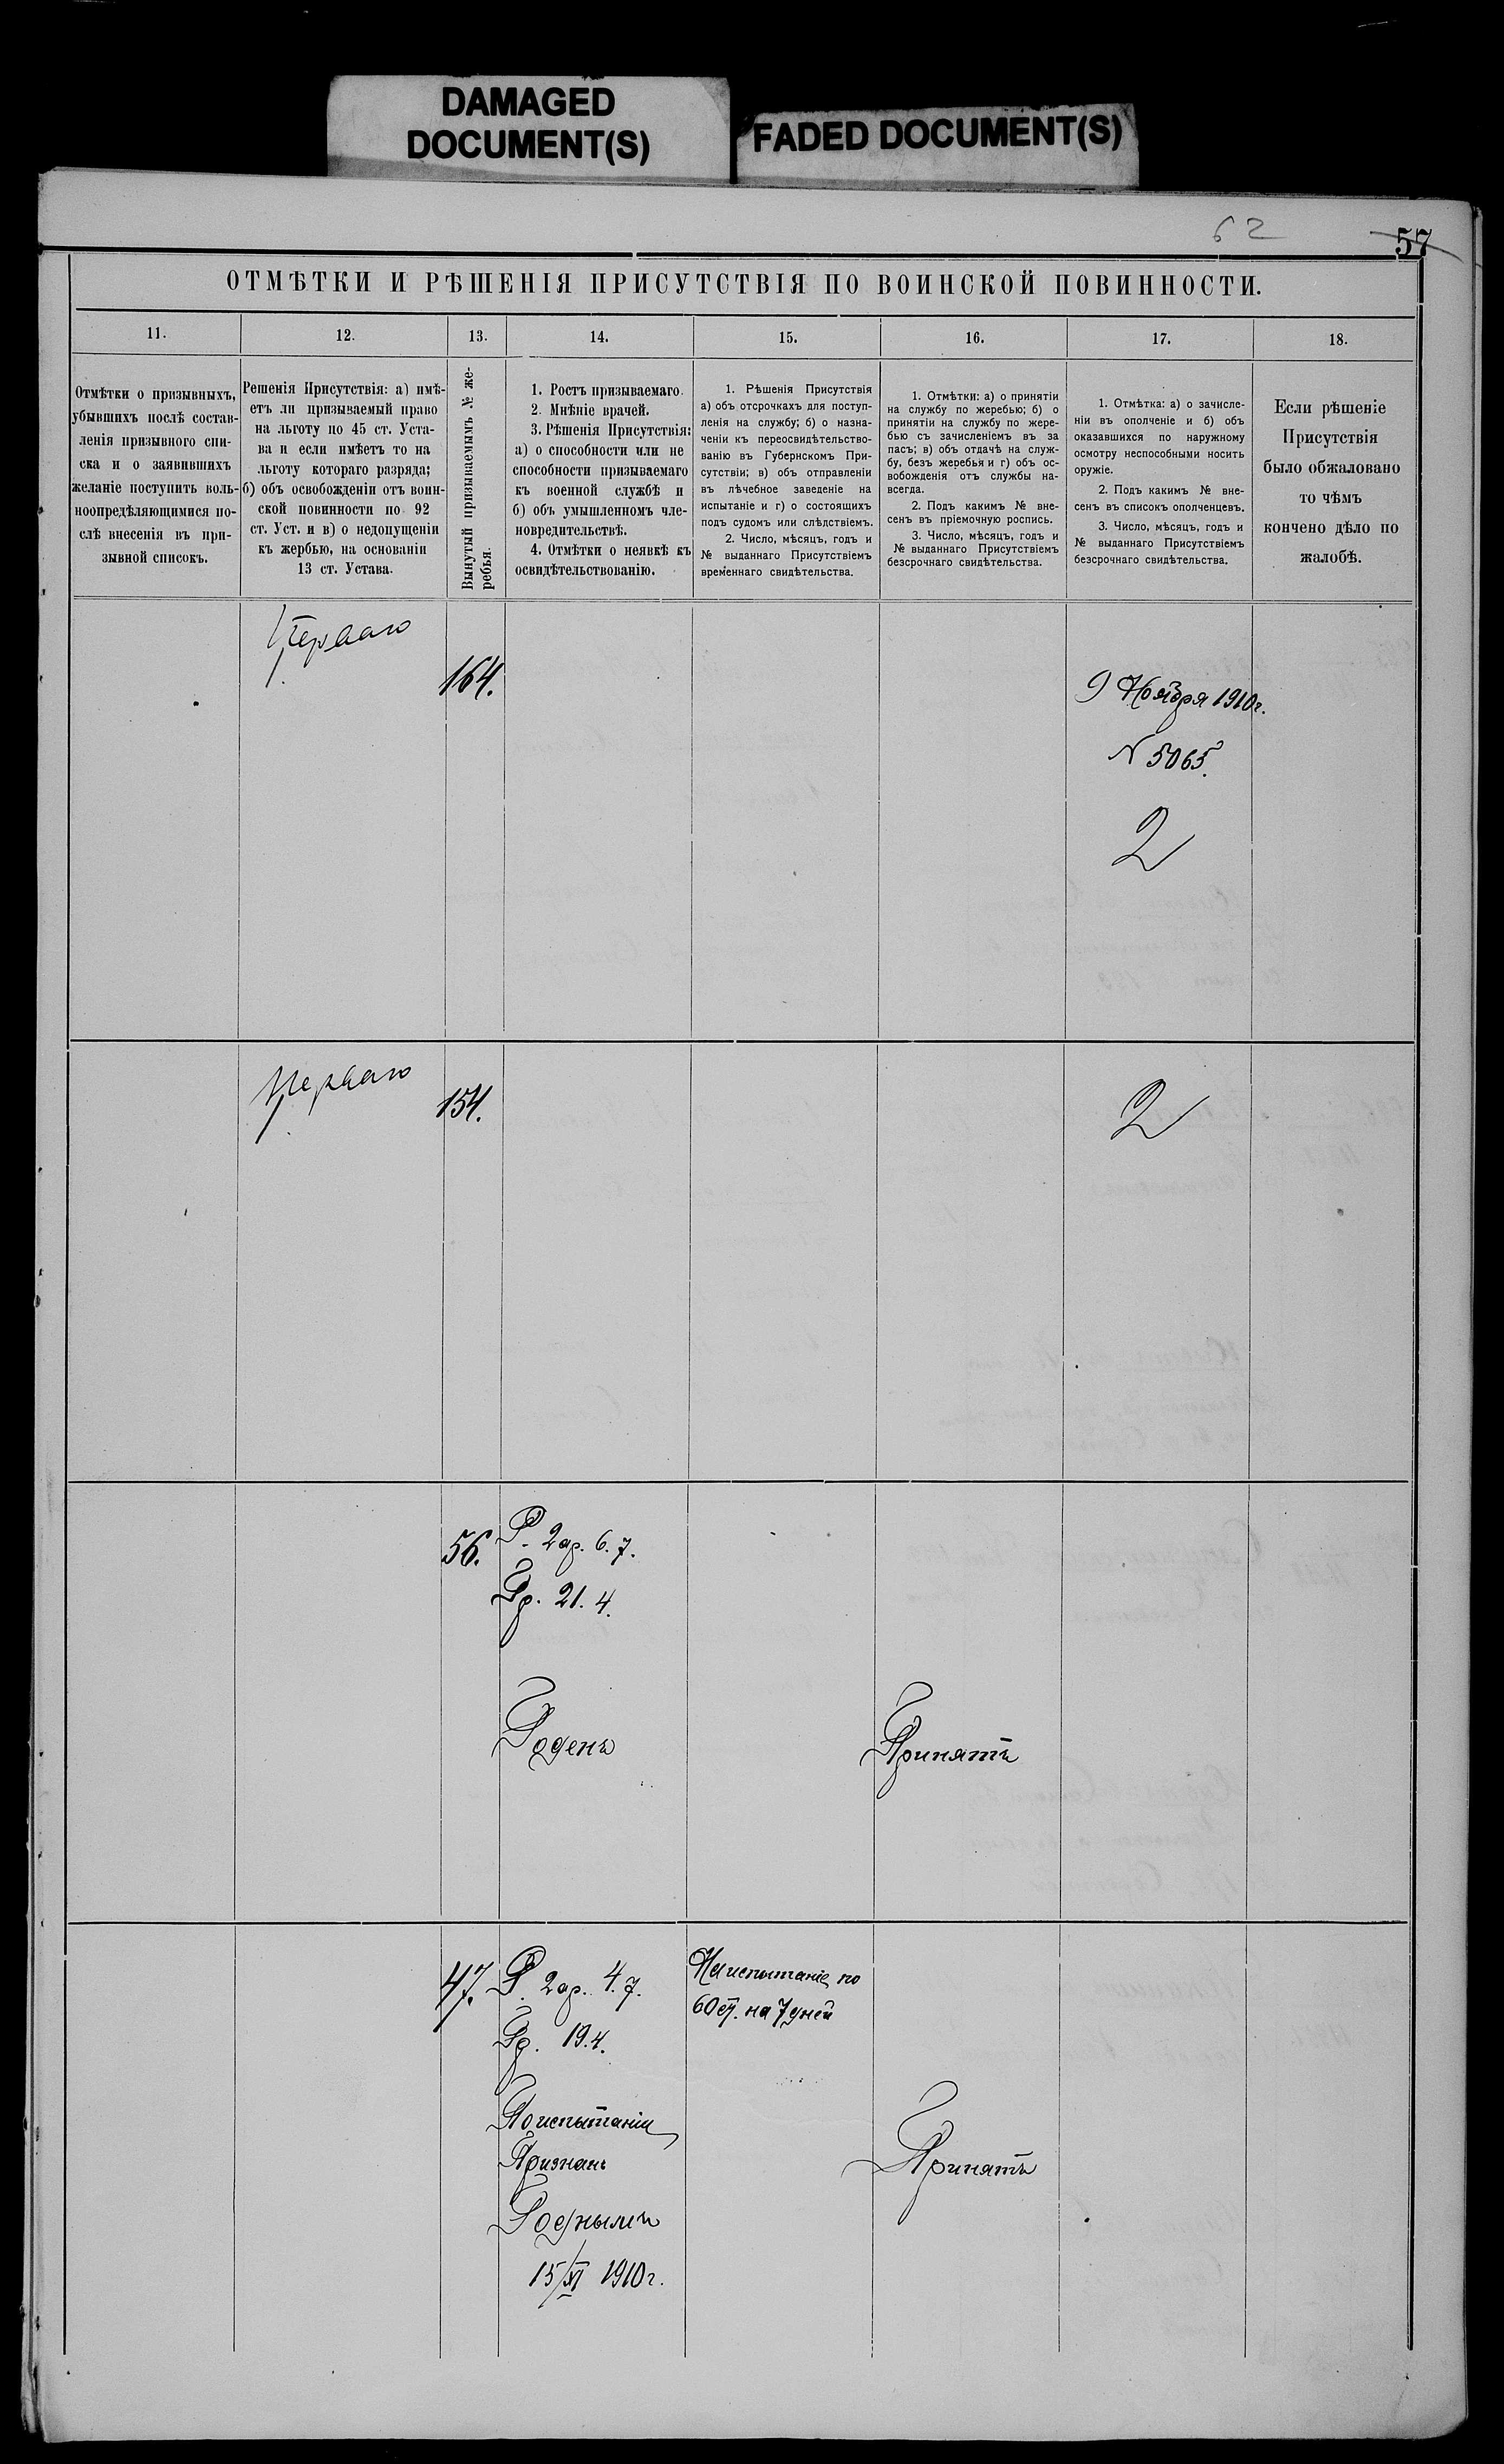 DAMAGED
DOCUMENT(S)
FADED DOCUMENT(S)
62
57
ОТМѢТКИ И РѢШЕНІЯ ПРИСУТСТВІЯ ПО ВОИНСКОЙ ПОВИННОСТИ.
11.
12.
13.
14.
15.
16.
17.
18.
Отмѣтки о призывныхъ,
убывшихъ послѣ состав-
ленія призывного спи-
ска и о заявившихъ
желаніе поступить воль-
ноопредѣляющимися по-
слѣ внесенія въ при-
зывной списокъ.
Решенія Присутствія: а) имѣ-
етъ ли призываемый право
на льготу по 45 ст. Уста-
ва и если имѣетъ то на
льготу котораго разряда;
б) объ освобожденіи отъ воин-
ской повинности по 92
ст. Уст. и в) о недопущеніи
къ жербью, на основаніи
13 ст. Устава.
Вынутый призываемымъ № же-
ребья.
1. Ростъ призываемаго.
2. Мнѣніе врачей.
3. Рѣшенія Присутствія:
а) о способности или не
способности призываемаго
къ военной службѣ и
б) объ умышленномъ чле-
новредительствѣ.
4. Отмѣтки о неявкѣ къ
освидѣтельствованію.
1. Рѣшенія Присутствія
а) объ отсрочкахъ для поступ-
ленія на службу; б) о назна-
ченіи къ переосвидѣтельство-
ванію въ Губернскомъ При-
сутствіи; в) объ отправленіи
въ лѣчебное заведеніе на
испытаніе и г) о состоящихъ
подъ судомъ или слѣдствіемъ.
2. Число, мѣсяцъ, годъ и
№ выданнаго Присутствіемъ
временнаго свидѣтельства.
1. Отмѣтки: а) о принятіи
на службу по жеребью; б) о
принятіи на службу по жере-
бью съ зачисленіемъ въ за
пасъ; в) объ отдачѣ на служ-
бу, безъ жеребья и г) объ ос-
вобожденія отъ службы на-
всегда.
2. Подъ какимъ № вне-
сенъ въ пріемочную роспись.
3. Число, мѣсяцъ, годъ и
№ выданнаго Присутствіемъ
безсрочнаго свидѣтельства.
1. Отмѣтка: а) о зачисле-
ніи въ ополченіе и б) объ
оказавшихся по наружному
осмотру неспособными носить
оружіе.
2. Подъ какимъ № вне-
сенъ въ списокъ ополченцевъ.
3. Число, мѣсяцъ, годъ и
№ выданнаго Присутствіемъ
безсрочнаго свидѣтельства.
Если рѣшеніе
Присутствія
было обжаловано
то чѣмъ
кончено дѣло по
жалобѣ.
Перваго
164.
9 Ноября 1910г.
N 5065.
2
Перваго
154.
2
56.
Р. 2ар. 6.7.
Гр. 21.4.
Годенъ
Принятъ
47.
Р. 2ар. 4.7.
Гр. 19.4.
На испытаніе по
60 ст. на 7 дней
По испытаніи
Признанъ
Годнымъ
15/XI 1910г.
Принятъ